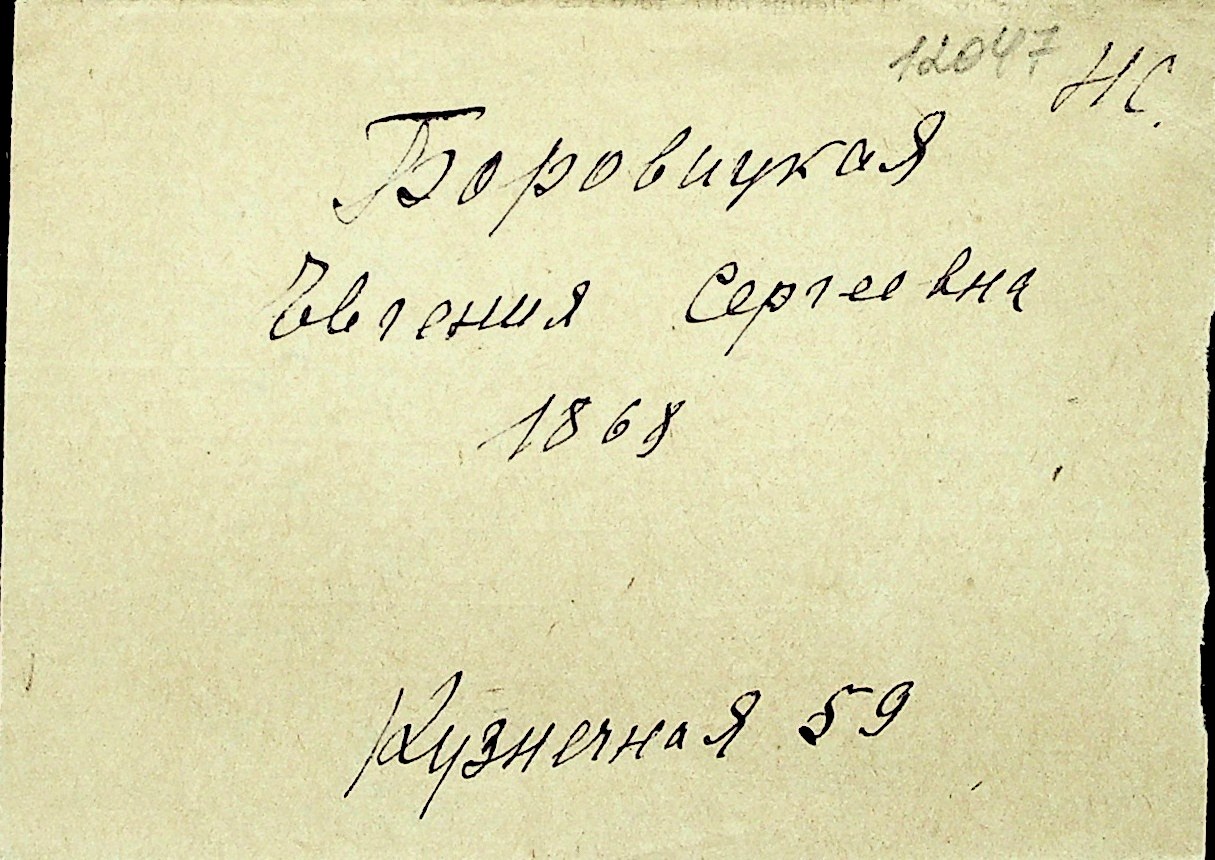 12047 НС.
Боровицкая
Евгения Сергеевна
1868
Кузнечная 59